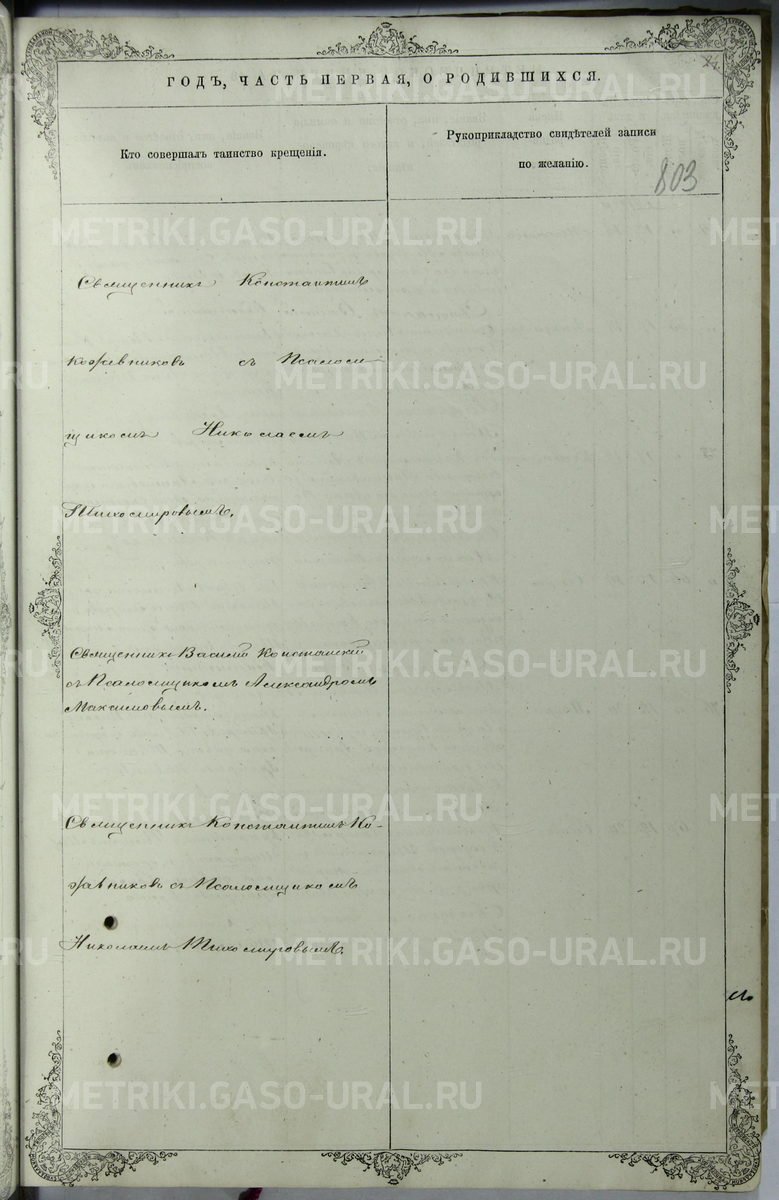 24
ГОДЪ, ЧАСТЬ ПЕРВАЯ, О РОДИВШИХСЯ.
Кто совершалъ таинство крещенія.
Рукоприкладство свидѣтелей записи
по желанію.
803
Священникъ Константинъ
Кожевниковъ съ Псалом-
щикомъ Николаемъ
Тихомировымъ.
Священникъ Василій
съ Псаломщикомъ Александромъ
Максимовымъ.
Священникъ Константинъ Ко-
жевниковъ съ Псаломщикомъ
Николаемъ Тихомировымъ.
METRIKI.GASO-URAL.RU